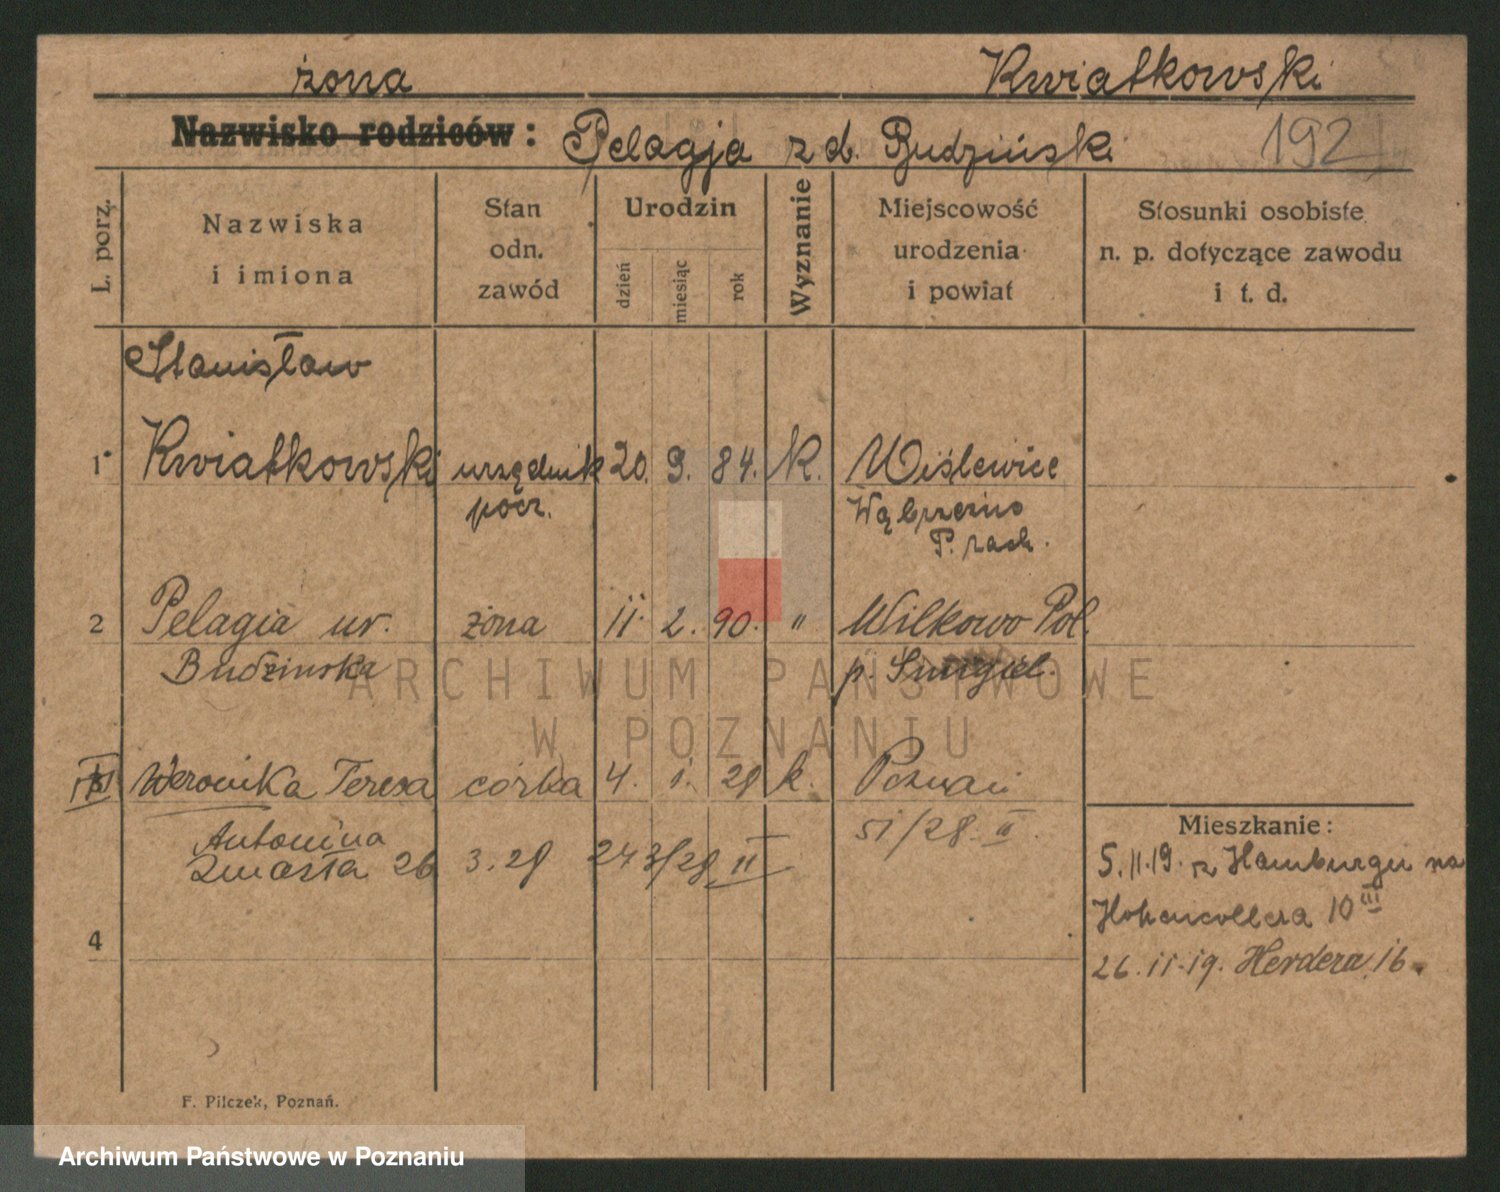 żona Kwiatkowski
Nazwisko rodziców: Pelagja z d. Budziński 192
L. porz.
Nazwiska
i imiona
Stan
odn.
zawód
Urodzin
dzień
miesiąc
rok
Wyznanie
Miejscowość
urodzenia
i powiat
Stosunki osobiste
n. p. dotyczące zawodu
i t. d.
Stanisław
1 Kwiatkowski urzędnik 20. 9. 84. K. Wiślewice
pocz. Wąbrzeźno
P. zach.
2 Pelagia ur. żona 11. 2. 90. " Wilkowo Pol.
Budzinska p. Śmigiel.
Weronika Teresa córka 4. 1. 28 k. Poznań
Antonina 51/28. II.
Zmarła 26 3. 28 243/28 II
Mieszkanie:
5.11.19. z Hamburgu na
Hohenzollerna 10 III
4
26.11.19. Herdera 16.
F. Pilczek, Poznań.
ARCHIWUM PAŃSTWOWE
W POZNANIU
Archiwum Państwowe w Poznaniu